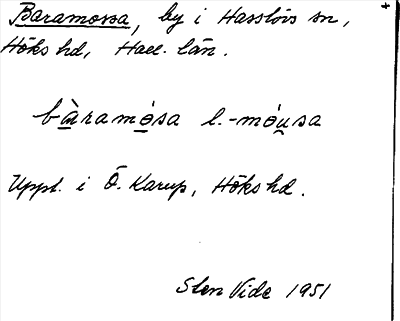 Baramossa, by i Hasslövs sn,
Höks hd, Hall. län.
bàramósa l. -móusa
Uppt. i Ö. Karup, Höks hd.
Sten Vide 1951